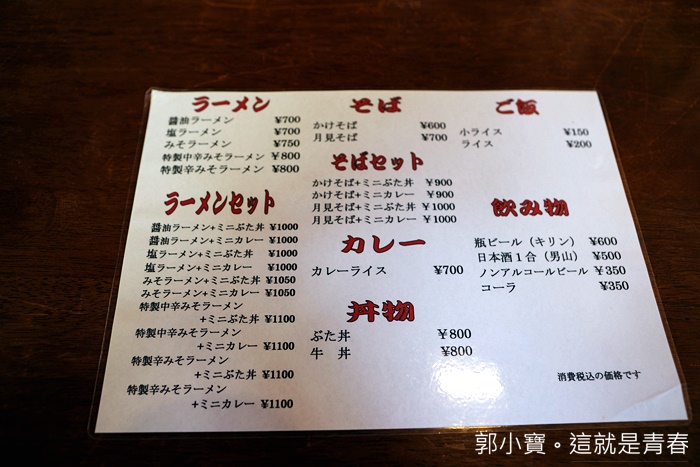 ラーメン
醤油ラーメン ¥700
塩ラーメン ¥700
みそラーメン ¥750
特製中辛みそラーメン ¥800
特製辛みそラーメン ¥800
ラーメンセット
醤油ラーメン+ミニぶた丼 ¥1000
醤油ラーメン+ミニカレー ¥1000
塩ラーメン+ミニぶた丼 ¥1000
塩ラーメン+ミニカレー ¥1000
みそラーメン+ミニぶた丼 ¥1050
みそラーメン+ミニカレー ¥1050
特製中辛みそラーメン
+ミニぶた丼 ¥1100
特製中辛みそラーメン
+ミニカレー ¥1100
特製辛みそラーメン
+ミニぶた丼 ¥1100
特製辛みそラーメン
+ミニカレー ¥1100
そば
かけそば ¥600
月見そば ¥700
そばセット
かけそば+ミニぶた丼 ¥900
かけそば+ミニカレー ¥900
月見そば+ミニぶた丼 ¥1000
月見そば+ミニカレー ¥1000
カレー
カレーライス ¥700
丼物
ぶた丼 ¥800
牛 丼 ¥800
ご飯
小ライス ¥150
ライス ¥200
飲み物
瓶ビール（キリン） ¥600
日本酒1合（男山） ¥500
ノンアルコールビール ¥350
コーラ ¥350
消費税込の価格です
郭小寶。這就是青春